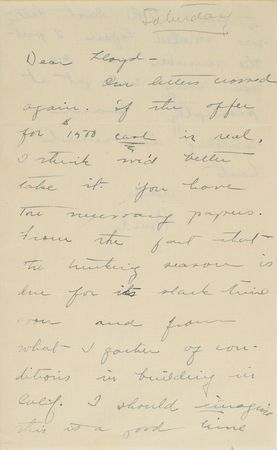 Saturday
Dear Lloyd—
Our letters crossed
again. If the offer
for $1500 cash is real,
I think we'd better
take it. You have
the necessary papers.
From the fact that
the building season is
due for its slack time
soon and from
what I gather of con-
ditions in building in
Calif. I should imagine
this is a good time